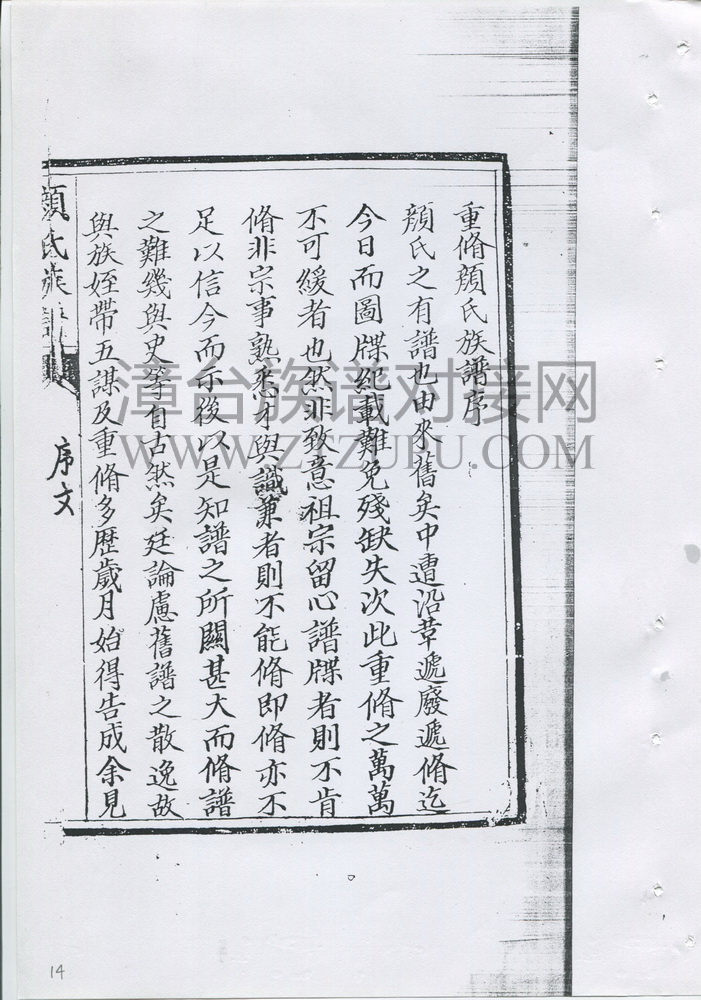 重脩顔氏族譜序
顔氏之有譜也由來舊矣中遭沿革遞廢遞脩迄
今日而圖牒紀載難免殘缺失次此重脩之萬萬
不可緩者也然非致意祖宗留心譜牒者則不肯
脩非宗事熟悉才與識兼者則不能脩即脩亦不
足以信今而示後以是知譜之所關甚大而脩譜
之難幾與史等自古然矣廷論慮舊譜之散逸故
與族姪帶五謀及重脩多歷歲月始得告成余見
顔氏族譜
序文
漳台族谱对接网
WWW.ZTZUPU.COM
14